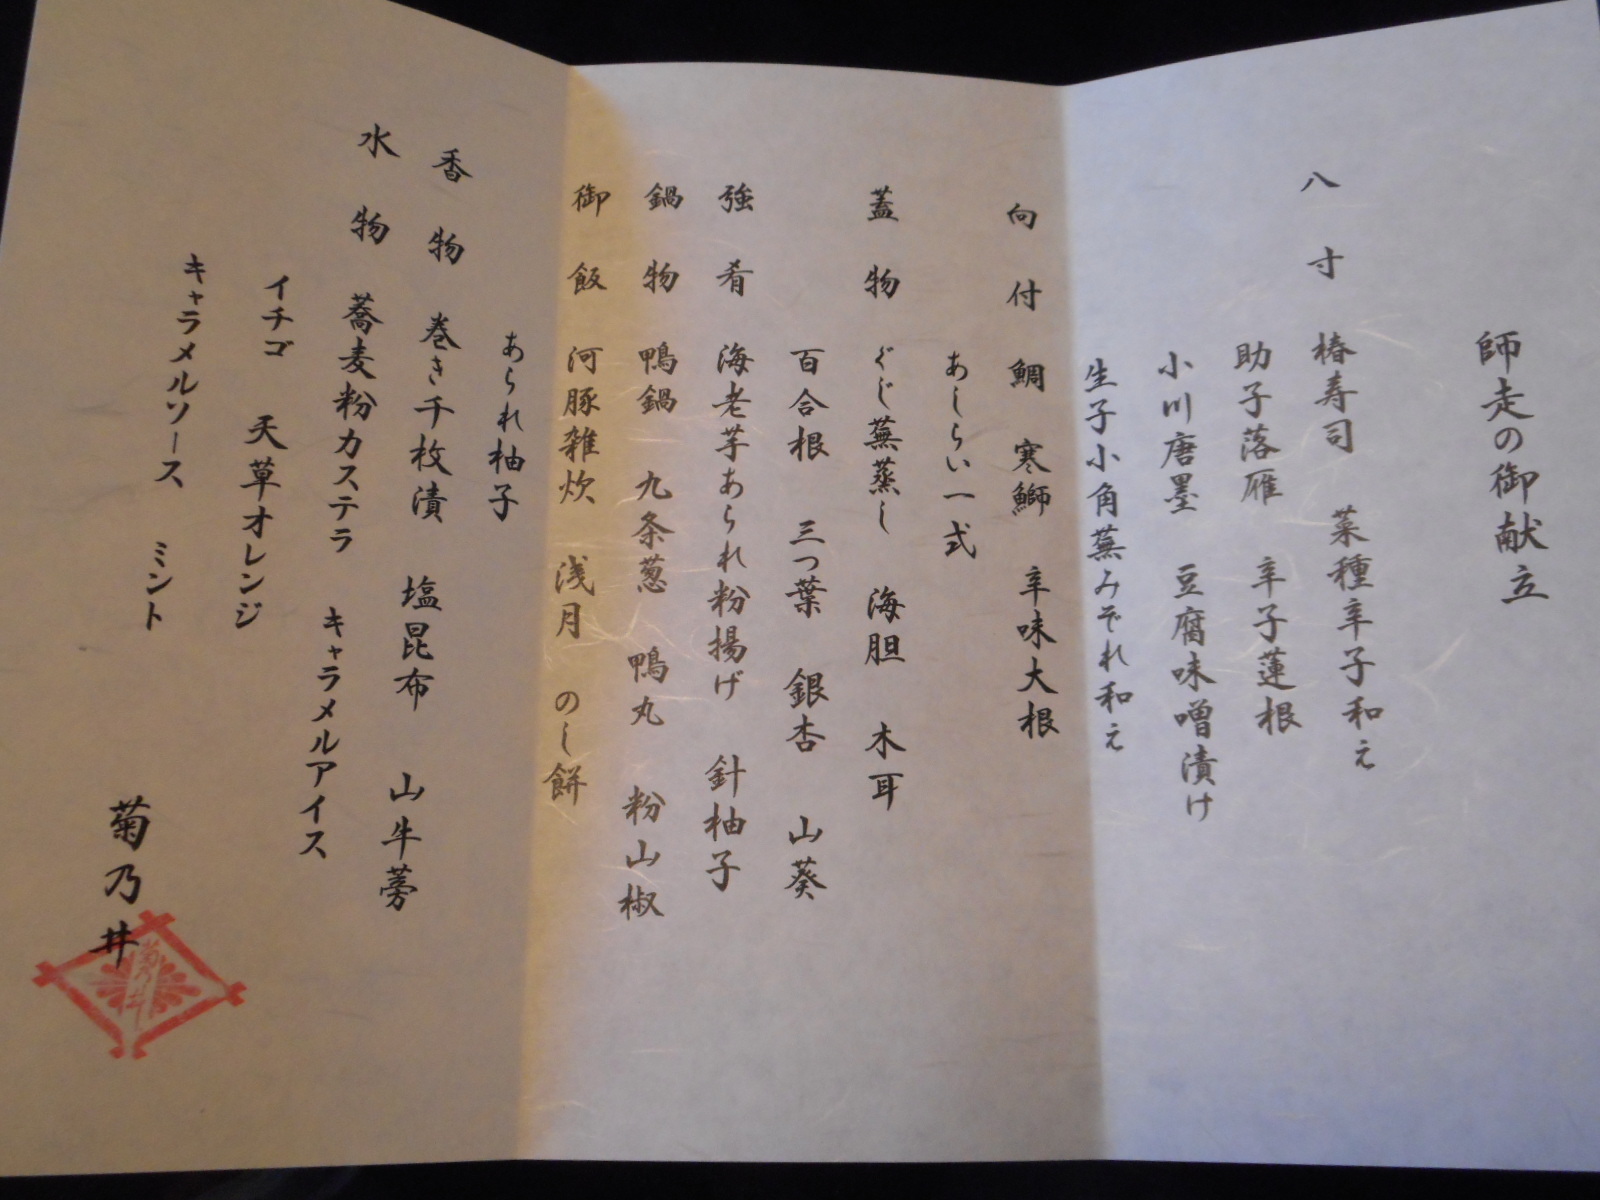 師走の御献立
八寸 椿寿司 菜種辛子和え
助子落雁 辛子蓮根
小川唐墨 豆腐味噌漬け
生子小角蕪みぞれ和え
向付 鯛 寒鰤 辛味大根
あしらい一式
蓋物 ぐじ蕪蒸し 海胆 木耳
百合根 三つ葉 銀杏 山葵
強肴 海老芋あられ粉揚げ 針柚子
鍋物 鴨鍋 九条葱 鴨丸 粉山椒
御飯 河豚雑炊 浅月 のし餅
あられ柚子
香物 巻き千枚漬 塩昆布 山牛蒡
水物 蕎麦粉カステラ キャラメルアイス
イチゴ 天草オレンジ
キャラメルソース ミント
菊乃井
菊乃井